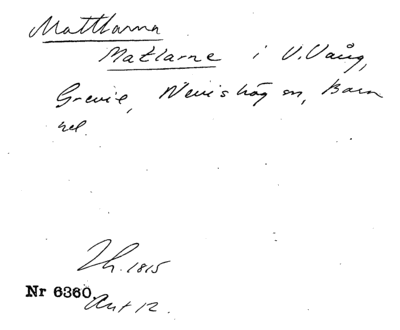 Mattlarna
Matlarne i V. Vång,
Grevie, Wemshög sn, Barn
rel.
Th. 1815
Nr 6360. Ant 12.